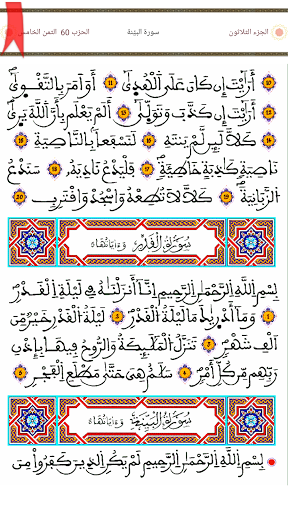 الجزء الثلاثون سورة البيّنة الحزب 60 الثمن الخامس
10 أَرَٰيْتَ إِن كَانَ عَلَى اَلْهُدَىٰٓ 11 أَوَ اَمَرَ بِالتَّقْوَىٰٓ
12 أَرَٰيْتَ إِن كَذَّبَ وَتَوَلَّىٰٓ 13 أَلَمْ يَعْلَم بِأَنَّ اَللَّهَ يَرَىٰ
14 كَلَّا لَئِن لَّمْ يَنتَهِ 15 لَنَسْفَعاً بِالنَّاصِيَةِ 16
نَاصِيَةٍ كَٰذِبَةٍ خَاطِئَةٍ 17 فَلْيَدْعُ نَادِيَهُۥ 18 سَنَدْعُ
اُلزَّبَانِيَةَ 19 كَلَّا لَا تُطِعْهُ وَاسْجُدْ وَاقْتَرِب 20
سُورَةُ الْقَدْرِ وَءَايَاتُهَا
بِسْمِ اِللَّهِ اِلرَّحْمَٰنِ اِلرَّحِيمِ إِنَّآ أَنزَلْنَٰهُ فِي لَيْلَةِ اِلْقَدْرِ
1 وَمَآ أَدْرَىٰكَ مَا لَيْلَةُ اُلْقَدْرِ 2 لَيْلَةُ اُلْقَدْرِ خَيْرٌ مِّنَ
اَلْفِ شَهْرٍ 3 تَنَزَّلُ اُلْمَلَٰٓئِكَةُ وَالرُّوحُ فِيهَا بِإِذْنِ
رَبِّهِم مِّن كُلِّ أَمْرٍ 4 سَلَٰمٌ هِيَ حَتَّىٰ مَطْلَعِ اِلْفَجْرِ 5
سُورَةُ الْبَيِّنَةِ وَءَايَاتُهَا
بِسْمِ اِللَّهِ اِلرَّحْمَٰنِ اِلرَّحِيمِ لَمْ يَكُنِ اِلذِينَ كَفَرُواْ مِنَ